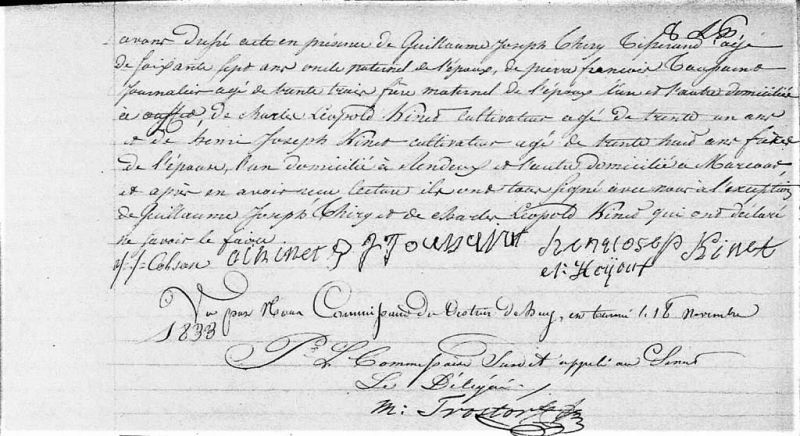 avons dressé acte en présence de Guillaume Joseph Thiry Tisserand agé
de soixante sept ans oncle maternel de l'époux, de pierre francois Toussaint
journalier agé de trente trois frère maternel de l'époux l'un et l'autre domicilié
à ouffet, de charles Léopold Kinet cultivateur agé de trente un ans
et de henri Joseph Kinet cultivateur agé de trente huit ans frères
de l'épouse, l'un domicilié à Rendeux et l'autre domicilié à Marcour,
et après en avoir reçu lecture ils ont tous signé avec nous a l'exception
de Guillaume Joseph Thiry et de charles Léopold Kinet qui ont déclaré
ne savoir le faire.
j. j. Colson a Kinet P f Toussaint henri Josep Kinet
Vu par Nous Commissaire du District de huy, en terme le 18 Novembre
1833
Pr. Le Commissaire Surlet appelé au Sénat
Le Délégué
M: